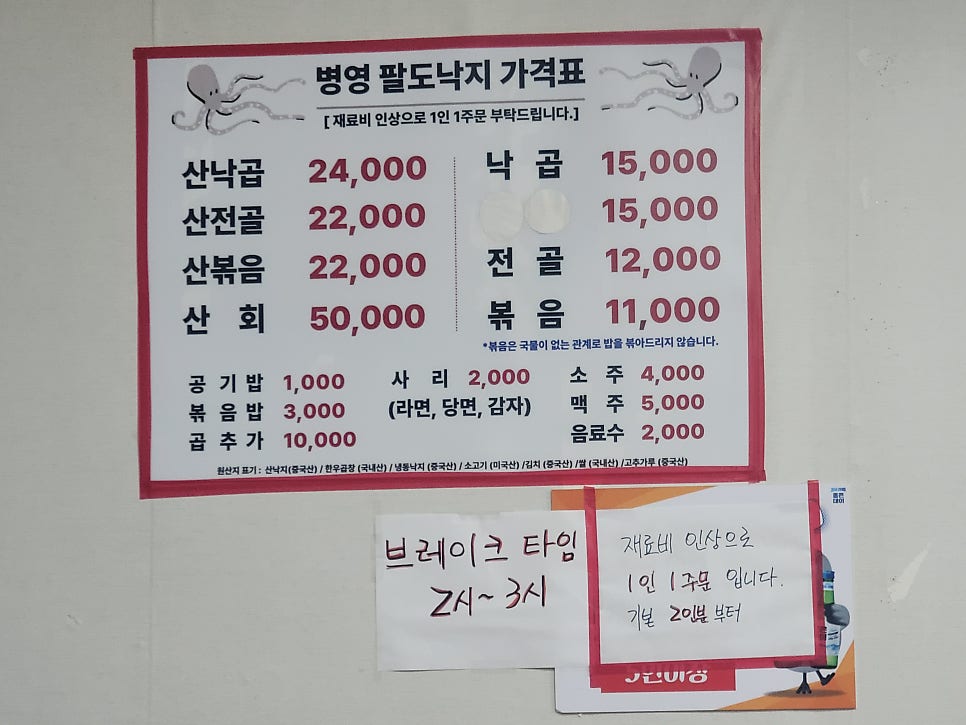 병영 팔도낙지 가격표
[ 재료비 인상으로 1인 1주문 부탁드립니다.]
산낙곱 24,000
산전골 22,000
산볶음 22,000
산 회 50,000
낙 곱 15,000
15,000
전 골 12,000
볶 음 11,000
*볶음은 국물이 없는 관계로 밥을 볶아드리지 않습니다.
공 기 밥 1,000
볶 음 밥 3,000
곱 추 가 10,000
사 리 2,000
(라면, 당면, 감자)
소 주 4,000
맥 주 5,000
음료수 2,000
원산지 표기 : 산낙지(중국산) / 한우곱창 (국내산) / 냉동낙지 (중국산) / 소고기 (미국산) /김치 (중국산) /쌀 (국내산) /고추가루 (중국산)
브레이크 타임
2시~ 3시
재료비 인상으로
1인 1주문 입니다.
기본 2인분 부터
좋은
데이